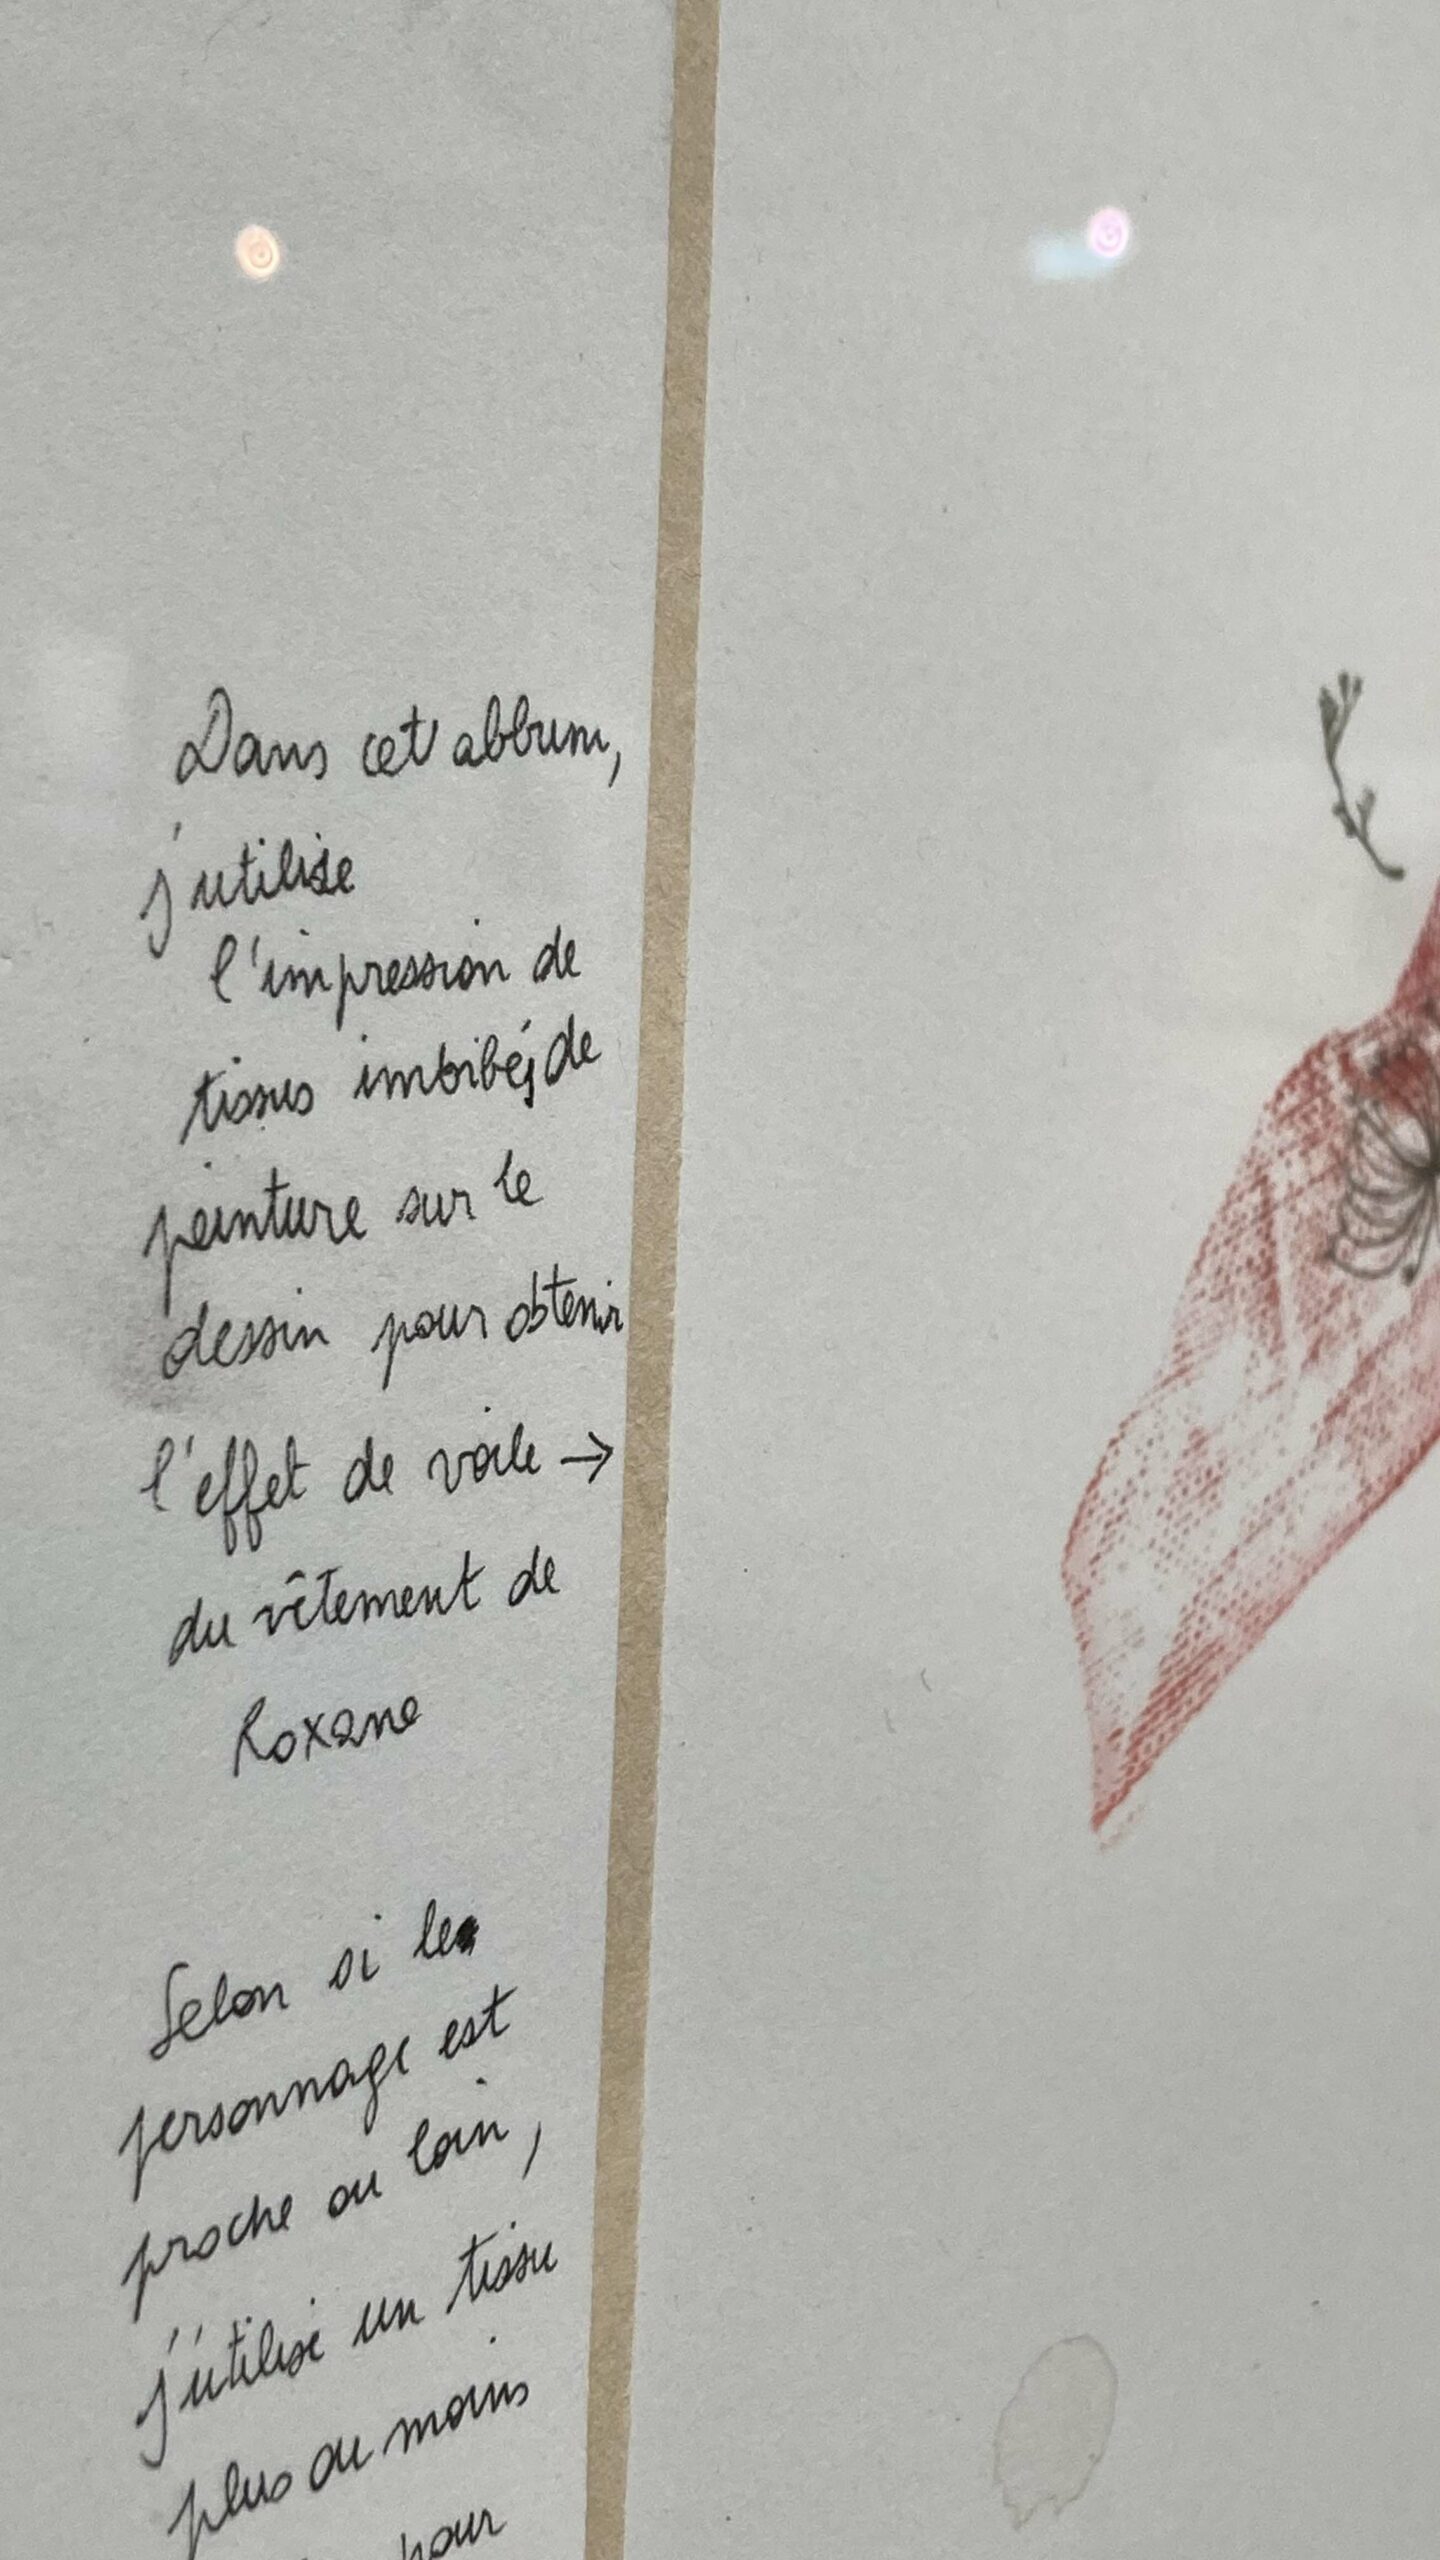 Dans cet album,
j'utilise
l'impression de
tissus imbibés de
peinture sur le
dessin pour obtenir
l'effet de voile →
du vêtement de
Roxane
Selon si le
personnage est
proche ou loin,
j'utilise un tissu
plus ou moins
pour